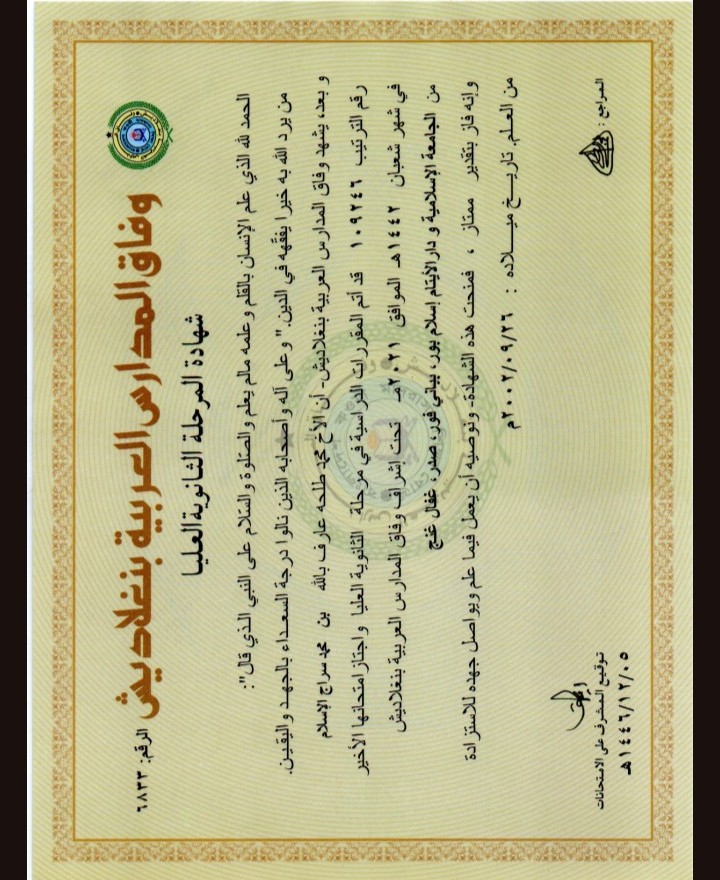 الرقم: ٦٨٣٣
وفاق المدارس العربية بنغلاديش
شهادة المرحلة الثانوية العليا
الحمد لله الذي علم الإنسان بالقلم و علمه مالم يعلم و الصلوة و السّلام على النبي الـذي قال":
من يرد الله به خيرا يفقّهه في الدين." و على آله و أصحابه الذين نالوا درجة السعـداء بالجهـد و اليقين.
و بعد، يشهد وفاق المدارس العربية بنغلاديش- أن الأخ محمد طلحه عارف بالله بن محمد سراج الإسلام
رقم الترتيب ١٠٩٢٤٦ قد أتم المقررات الدراسية في مرحلة الثانوية العليا و اجتاز امتحانها الأخير
في شهر شعبان ١٤٤٢هـ الموافق ٢٠٢١مـ تحت إشراف وفاق المدارس العربية بنغلاديش
من الجامعة الإسلامية و دار الأيتام إسلام بور، بيانى فور، صدر، غفال غنج
وإنه فاز بتقدير ممتاز ، فمنحت هذه الشهادة- ونوصيه أن يعمل فيما علم ويواصل جهده للاستزادة
من العلم. تاريـخ ميـــلاده : ٢٠٠٢/٠٩/٢٦م
المراجع :
توقيع المشرف على الامتحانات
١٤٤٦/١٢/٠٥هـ